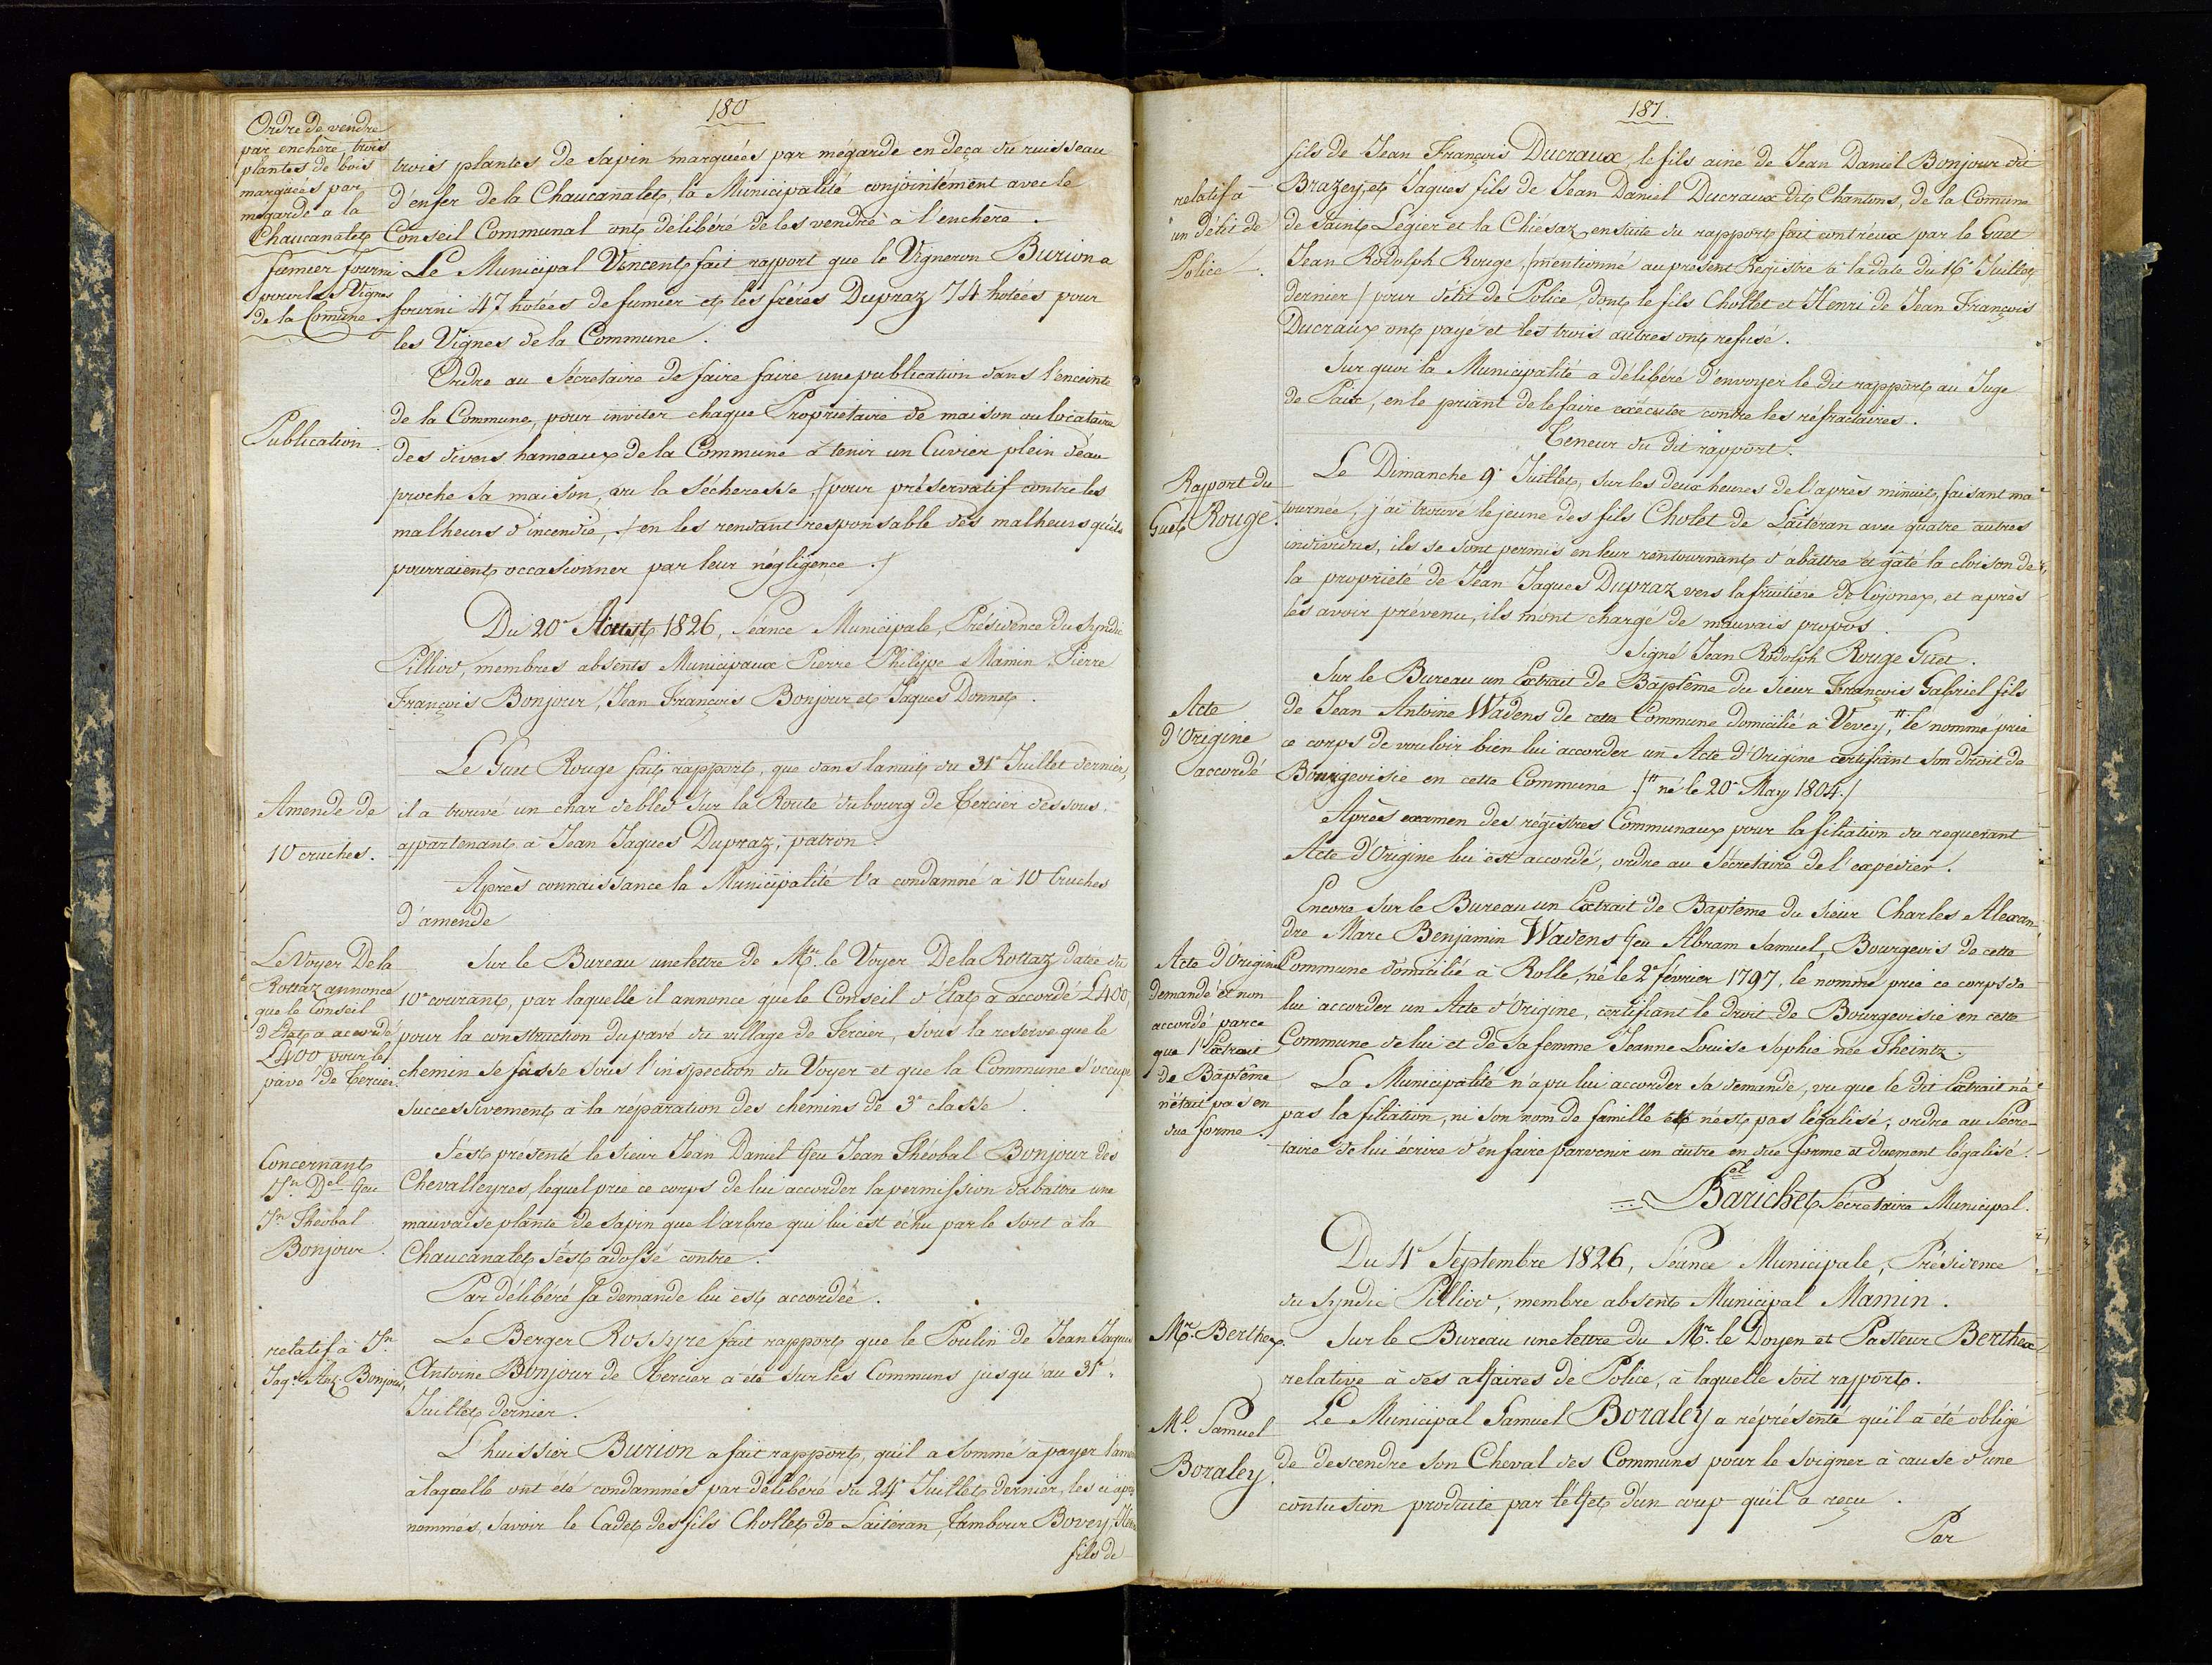 180
Ordre de vendre
par enchère, trois
plantes de bois
marquées par
mégarde à la
Chaucanalet
trois plantes de sapin marquées par mégarde en deça du ruisseau
d'enfer de la Chaucanalet, la Municipalité conjointément avec le
Conseil Communal ont délibéré de les vendre à l'enchère.
fumier fourni
pour les Vignes
de la Comune.
Le Municipal Vincent fait raport que le Vigneron Burion a
fourni 47 hotées de fumier et les fréres Dupraz 74 hotées pour
les Vignes de la Commune.
Publication.
Ordre au Sécretaire de faire faire une publication dans l'enceinte
de la Commune, pour inviter chaque Propriétaire de maison ou locataire
des divers hameaux de la Commune à tenir un Cuvier plein d'eau
proche sa maison, vu la sécheresse, /pour préservatif contre les
malheurs d'incendie, / en les rendant responsable des malheurs qu'ils
pourraient occasionner par leur négligence ./
Du 20e Aoust 1826, Séance Municipale, Présidence du Syndic
Pilliod, membres absents Municipaux Pierre Philippe Mamin, Pierre
François Bonjour, Jean François Bonjour et Jaques Donnet.
Amende de
10 cruches.
Le Guet Rouge fait rapport, que dans la nuit du 31e Juillet dernier,
il a trouvé un char de bled sur la Route du bourg de Tercier dessous
appartenant à Jean Jaques Dupraz, patron.
Après connaissance la Municipalité l'a condamné à 10 Cruches
d'amende
Le Voyer De la
Rottaz annonce
que le Conseil
d'Etat a accordé
L400 pour le
pavé de Tercier.
Sur le Bureau une lettre de Mr. le Voyer De la Rottaz datée du
10e courant, par laquelle il annonce que le Conseil d'Etat a accordé L400,
pour la construction du pavé du village de Tercier, sous la reserve que le
chemin se fasse sous l'inspection du Voyer et que la Commune s'occupe
successivement à la réparation des chemins de 3e classe.
Concernant
Jn. Del feu
Jn Theobal
Bonjour.
S'est presenté le Sieur Jean Daniel feu Jean Théobal Bonjour des
Chevalleyres, lequel prie ce corps de lui accorder la permission d'abattre une
mauvaise plante de sapin que l'arbre qui lui est échu par le sort à la
Chaucanalet s'est adossé contre.
Par délibéré sa demande lui est accordée.
relatif à Jn.
Jaqs. Ant. Bonjour,
Le Berger Rossyre fait rapport que le Poulin de Jean Jaques
Antoine Bonjour de Tercier a été sur les Communs jusqu'au 31e
Juillet dernier.
L'huissier Burion a fait rapport, qu'il a sommé à payer l'amen
à laquelle ont été condamnés par délibéré du 24e Juillet dernier, les ci après
nommés, savoir le Cadet des fils Chollet de Laiteran, Tambour Bovey, Henri
fils de
181.
relatif à
un délit de
Police.
fils de Jean François Ducraux, le fils ainé de Jean Daniel Bonjour dit
Brazey, et Jaques fils de Jean Daniel Ducraux dit Chantons, de la Comune
de Saint Légier et la Chiésaz, ensuite du rapport fait contr'eux par le Guet
Jean Rodolph Rouge, /mentionné au présent Registre à la date du 16e Juillet
dernier / pour délit de Police, dont le fils Chollet et Henri de Jean François
Ducraux ont payé et les trois autres ont refusé.
Sur quoi la Municipalité a délibéré d'envoyer le dit rapport au Juge
de Paix, en le priant de le faire exécuter contre les réfractaires.
Teneur du dit rapport.
Raport du
Guet Rouge.
Le Dimanche 9e Juillet, sur les deux heures de l'après minuit, faisant ma
tournée, j'ai trouvé le jeune des fils Cholet de Laitéran avec quatre autres
individus, ils se sont permis en leur rentournant d'abattre et gâté la cloison de
la propriété de Jean Jaques Dupraz vers la fruitiere de Cojonex, et après
les avoir prévenu, ils m'ont chargé de mauvais propos
Signé Jean Rodolph Rouge Guet.
Acte
d'Origine
accordé
Sur le Bureau un Extrait de Baptême du Sieur François Gabriel fils
de Jean Antoine Wadens de cette Commune domicilié à Vevey, " le nommé prie
ce corps de vouloir bien lui accorder un Acte d'Origine certifiant son droit de
Bourgeoisie en cette Commune ./" né le 20e May 1804./
Après examen des régistres Communaux pour la filiation du requerant
Acte d'Origine lui est accordé, ordre au Sécretaire de l'expedier.
Acte d'Origine
demandé et non
accordé parce
que l'Extrait
de Baptême
n'était pas en
due forme.
Encore sur le Bureau un Extrait de Bapteme du Sieur Charles Alexan
dre Marc Benjamin Wadens feu Abram Samuel, Bourgeois de cette
Commune domicilié à Rolle, né le 2e février 1797, le nommé prie ce corps de
lui accorder un Acte d'Origine, certifiant le droit de Bourgeoisie en cette
Commune de lui et de sa femme Jeanne Louise Sophie née Theintz.
La Municipalité n'a pu lui accorder sa demande, vu que le dit Extrait n'a
pas la filiation, ni son nom de famille et n'est pas légalisé, ordre au Sécre-
taire de lui écrire d'en faire parvenir un autre en due forme et duement légalisé.
Barichet Sécretaire Municipal.
Du 4e Septembre 1826, Séance Municipale, Présidence
du Syndic Pilliod, membre absent Municipal Mamin.
Mr. Berthex.
Sur le Bureau une lettre du Mr. le Doyen et Pasteur Berthex
relative à des affaires de Police, à laquelle soit rapport.
Ml. Samuel
Boraley.
Le Municipal Samuel Boraley a réprésenté qu'il a été obligé
de descendre son Cheval des Communs pour le soigner à cause d'une
contusion produite par l'effet d'un coup qu'il a reçu.
Par